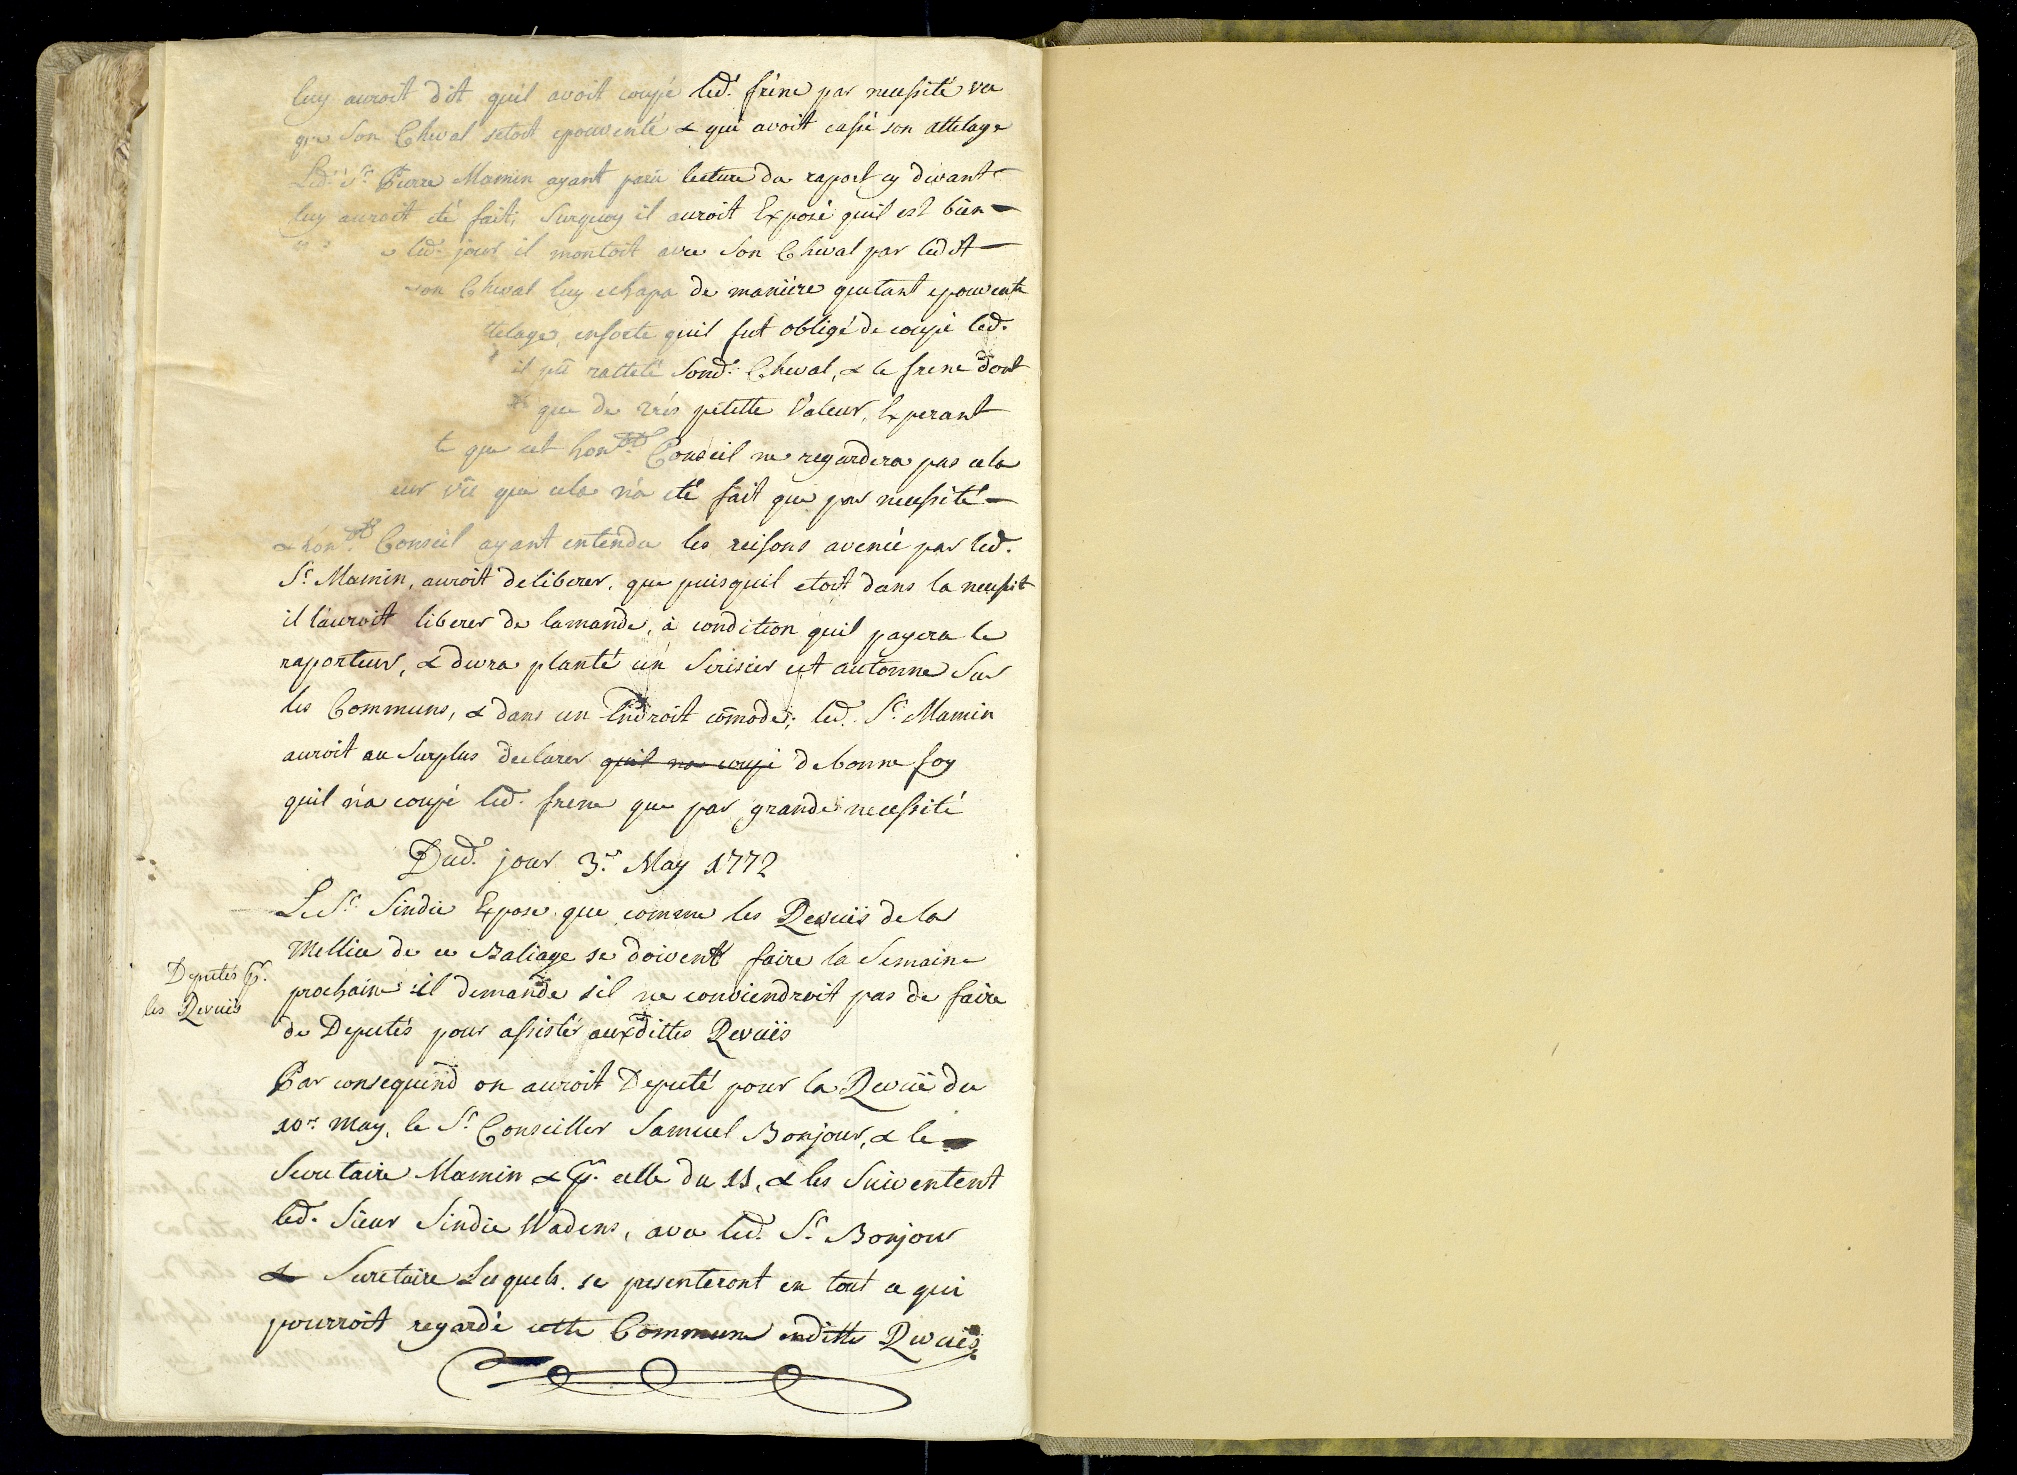 luy auroit dit quil avoit coupé led.ᵗ frêne par necessité vu
que son Cheval setoit epouventé & qui avoit cassé son attelage
Led.ᵗ Sʳ Pierre Mamin ayant paru lecture du raport cy devant
luy auroit eté fait, Surquoy il auroit Exposé quil est bien
led. jour il montoit avec son Cheval par ledit
son Cheval luy echapa de manière quetant epouventé
attelage, ensorte quil fut obligé de coupé led.
il pû rattelé Sond.ᵗ Cheval, & le frene dont
que de très petitte Valeur, Experant
que cet honᵇˡᵉ Conseil ne regardera pas cela
vû que cela n'a eté fait que par necessité
& honᵇˡᵉ Conseil ayant entendu les reisons avencé par led.
Sʳ Mamin, auroit deliberer, que puisquil etoit dans la necessit
il lauroit liberer de lamande, à condition quil payera le
raporteur, & devra planté un Serisier cet autonne Sur
les Communs, & dans un Endroit comode; led. Sʳ Mamin
auroit au Surplus declarer quil na coupé de bonne foy
quil n'a coupé led. frene que par grande necessité
Dud.ᵗ jour 3.ᵉ May 1772
Le Sʳ Sindic Expose que comme les Revuës de la
Mellice de ce Baliage se doivent faire la Semaine
Deputés pʳ.
les Revuës
prochaine il demande sil ne conviendroit pas de faire
de Deputés pour assister auxdittes Revuës
Par consequend on auroit Deputé pour la Revuë du
10.ᵉ may, le Sʳ Conseiller Samuel Bonjour, & le
Secretaire Mamin & pʳ. celle du 11, & les Suiventent
led. Sieur Sindic Wadens, avec led. Sʳ Bonjour
& Secretaire Lesquels. se presenteront en tout ce qui
pourroit regardé cette Commune enditte Revuës